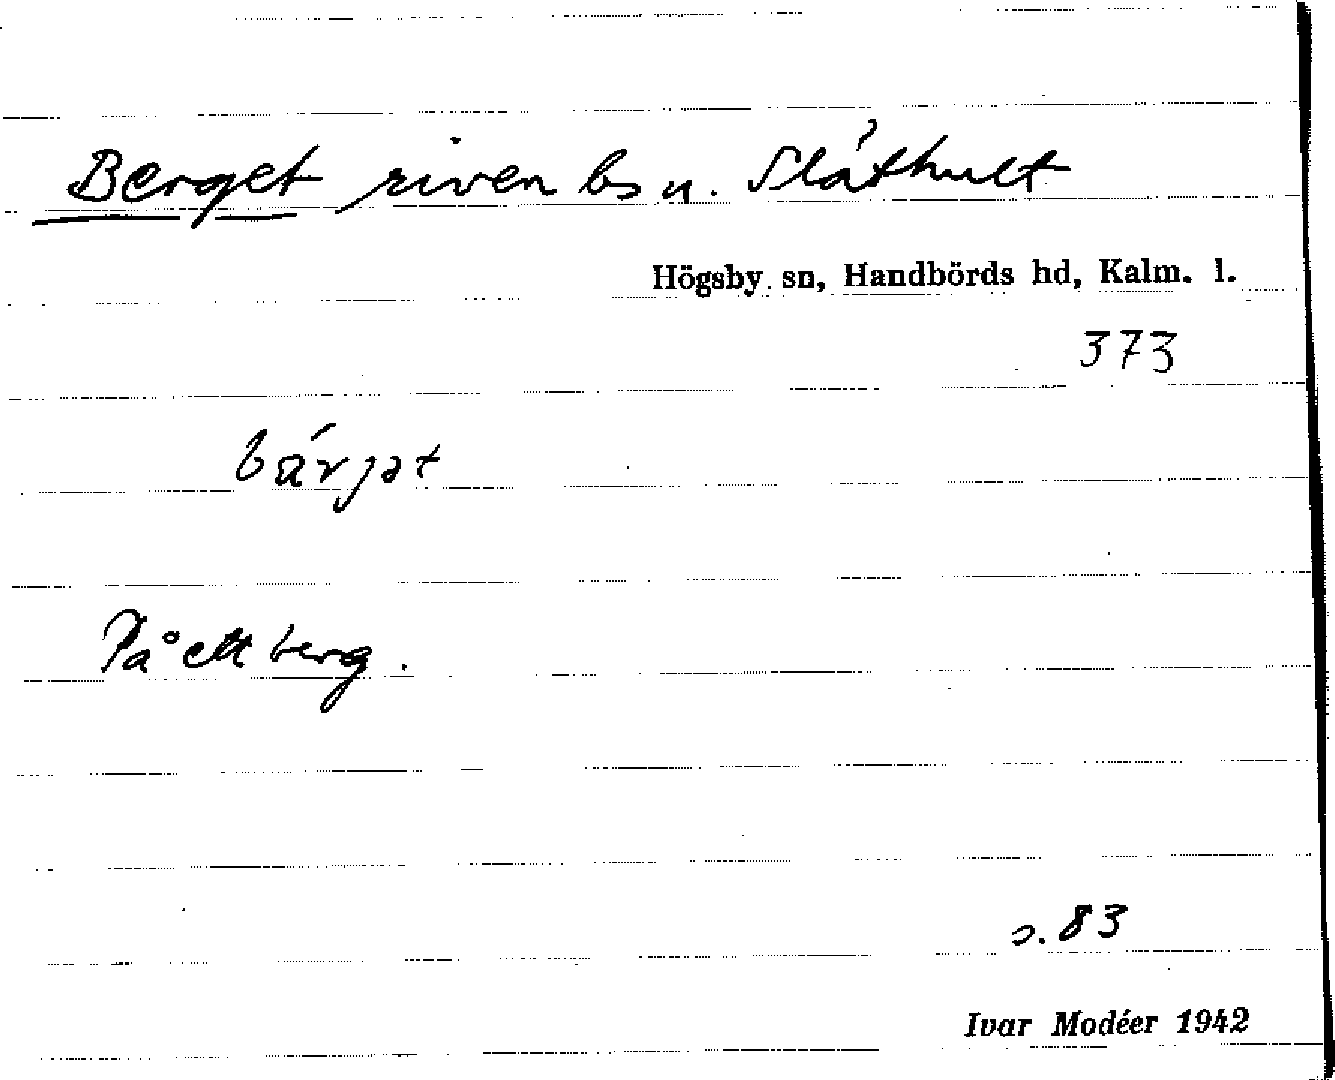 Berget riven bs u. Slåthult
Högsby sn, Handbörds hd, Kalm. l.
373
bärjət
På ett berg.
s. 83
Ivar Modéer 1942